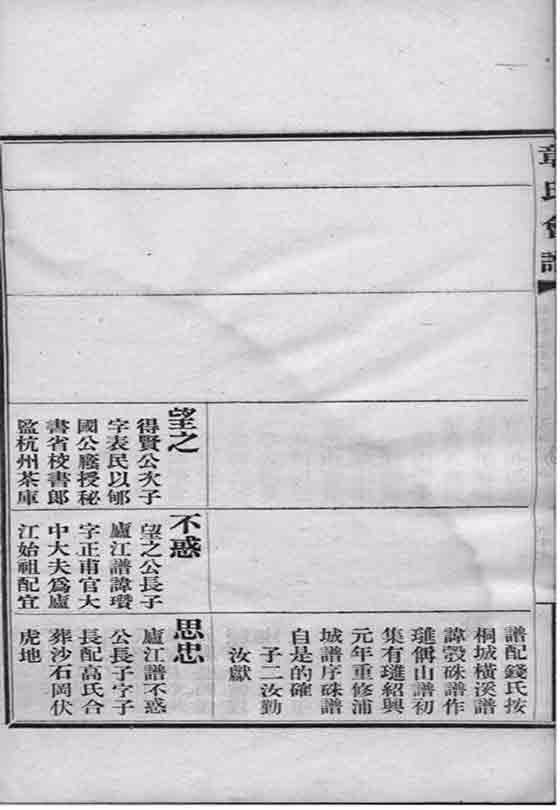 章氏會譜
望之
得賢公次子
字表民以郇
國公廕授秘
書省校書郎
監杭州茶庫
不惑
望之公長子
廬江譜諱瓚
字正甫官大
中大夫爲廬
江始祖配宜
譜配錢氏按
桐城橫溪譜
諱瑴硃譜作
璡偁山譜初
集有璡紹興
元年重修浦
城譜序硃譜
自是的確
子二汝勤
汝獻
思忠
廬江譜不惑
公長子字子
長配高氏合
葬沙石岡伏
虎地